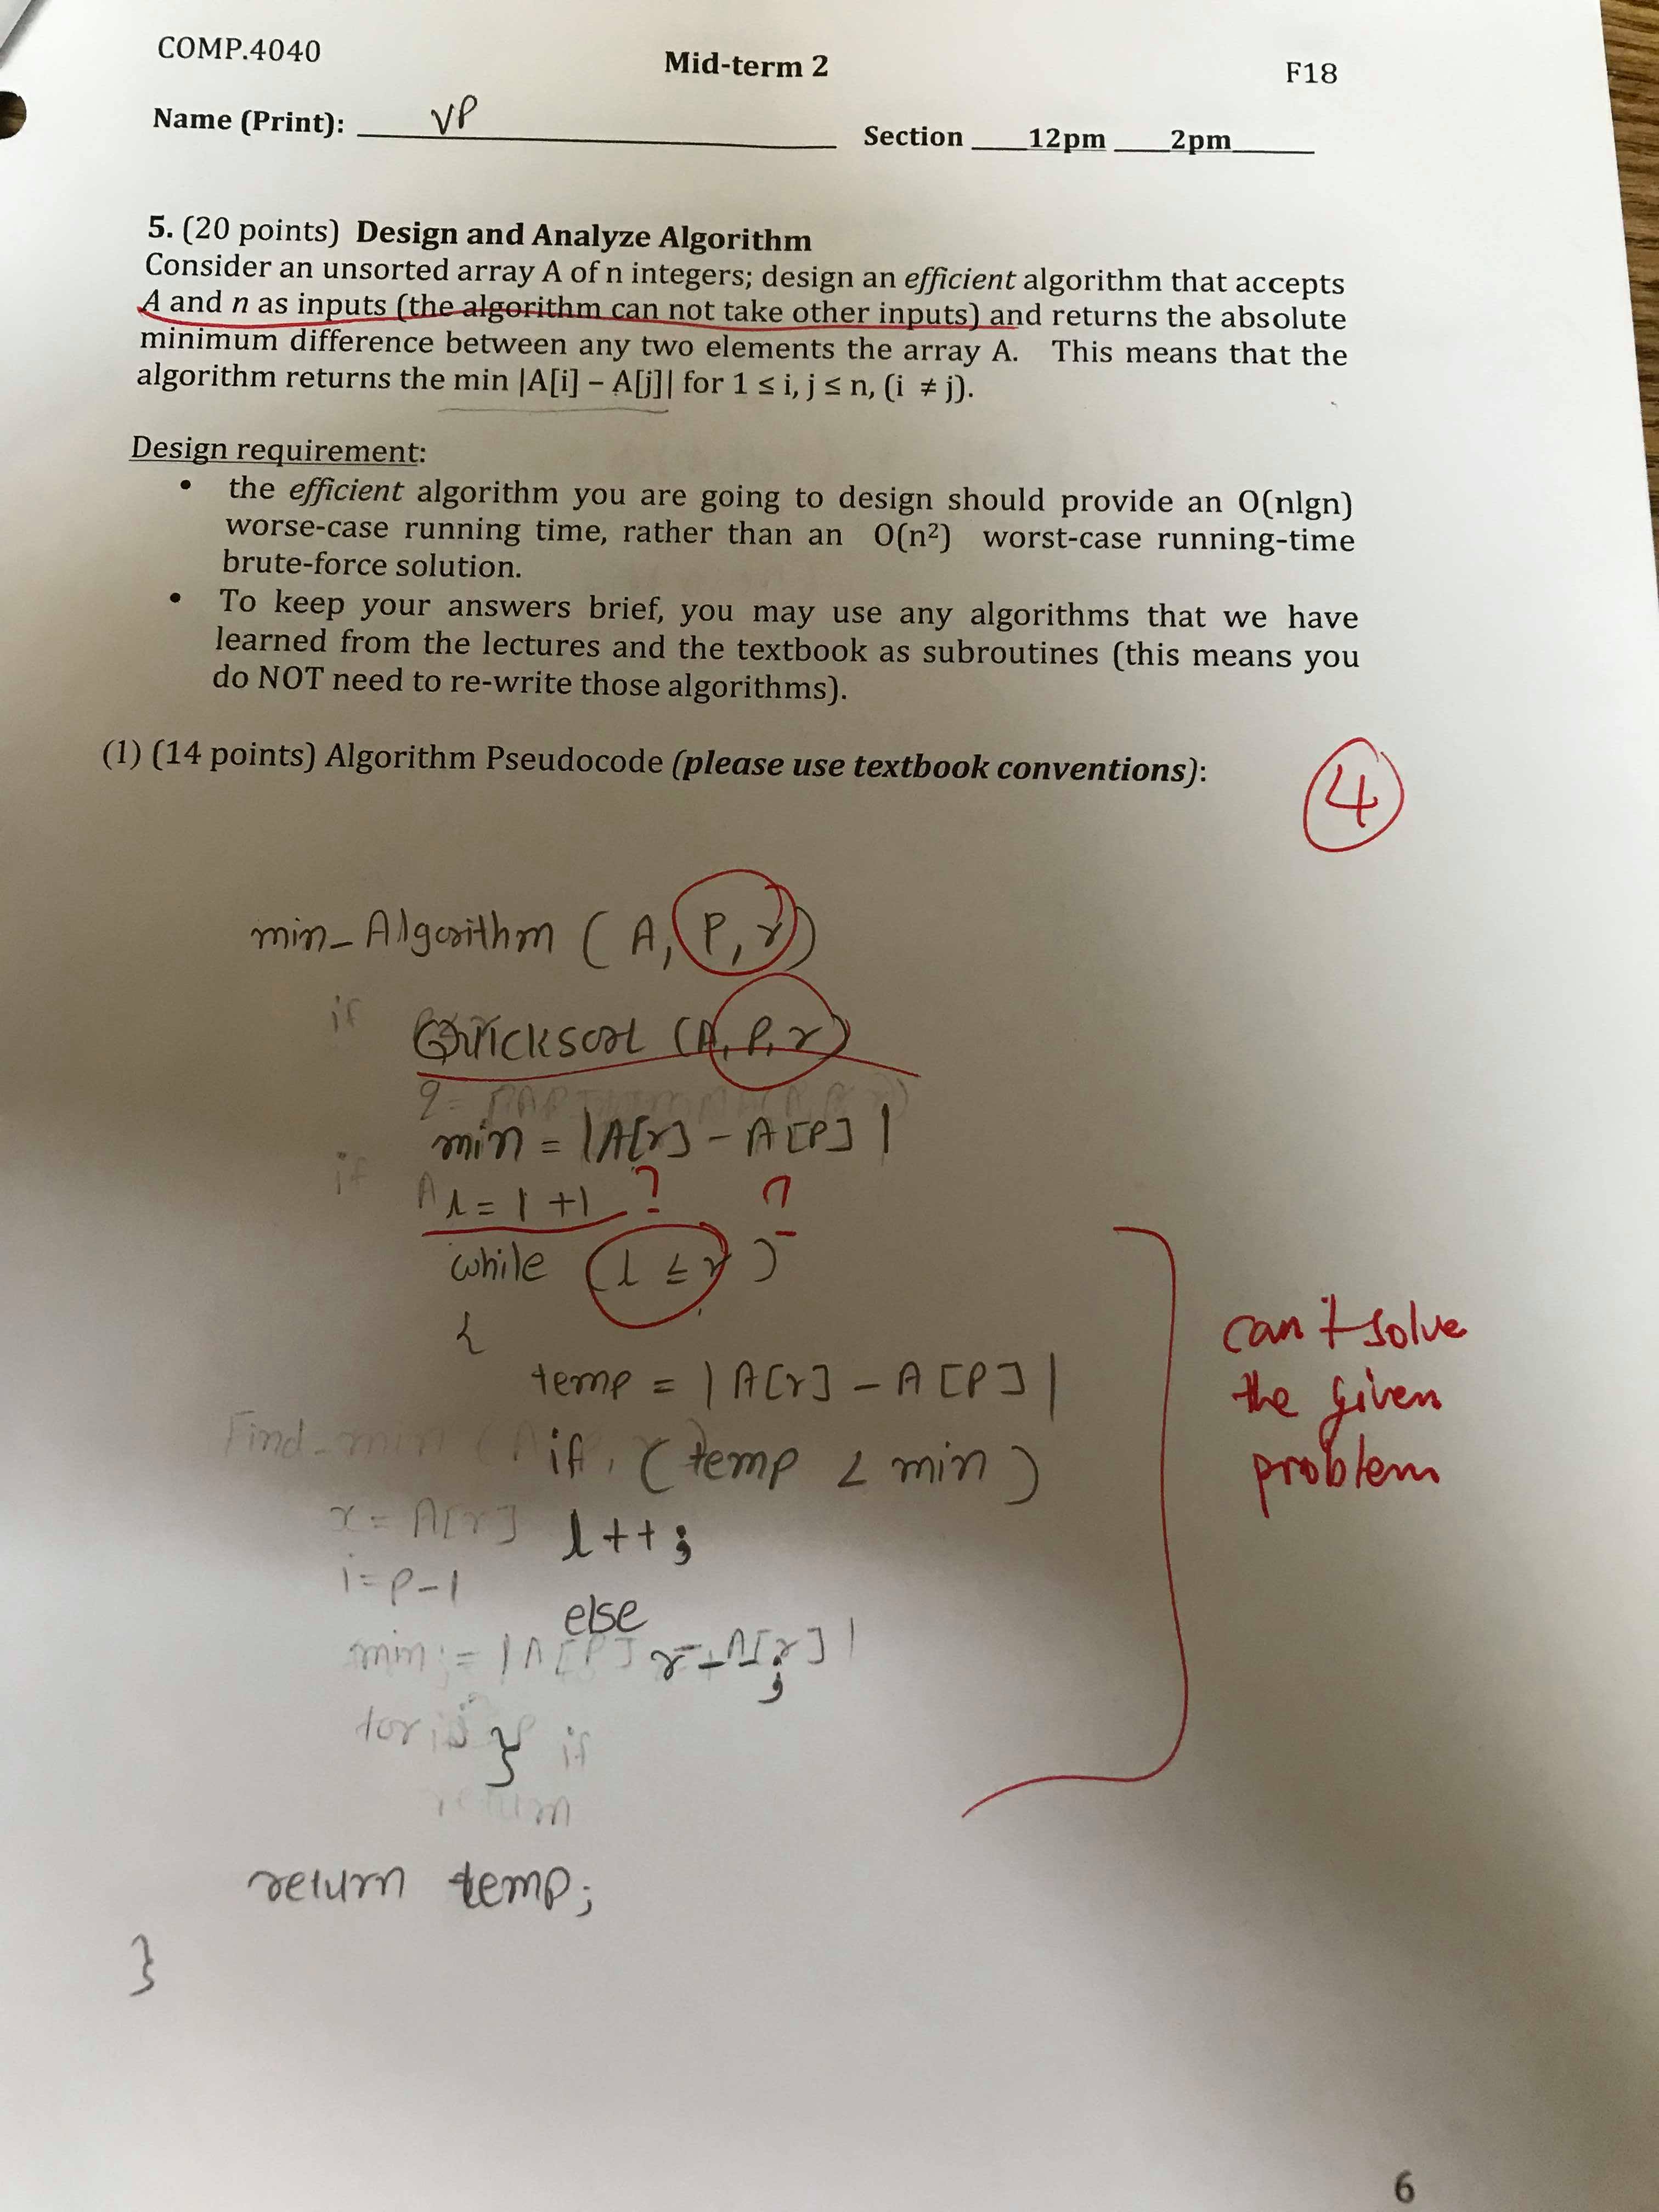 COMP.4040 Mid-term 2 F18
Name (Print): VP Section ____12pm ____2pm______
5. (20 points) Design and Analyze Algorithm
Consider an unsorted array A of n integers; design an efficient algorithm that accepts
A and n as inputs (the algorithm can not take other inputs) and returns the absolute
minimum difference between any two elements the array A. This means that the
algorithm returns the min |A[i] – A[j]| for 1 ≤ i, j ≤ n, (i ≠ j).
Design requirement:
• the efficient algorithm you are going to design should provide an O(nlgn)
worse-case running time, rather than an O(n²) worst-case running-time
brute-force solution.
• To keep your answers brief, you may use any algorithms that we have
learned from the lectures and the textbook as subroutines (this means you
do NOT need to re-write those algorithms).
(1) (14 points) Algorithm Pseudocode (please use textbook conventions):
4
min_Algorithm (A, P, r)
if
Quicksort (A, P, r)
q =
min = |A[r] - A[P]|
if
l = 1 + 1 ? ?
while (l ≤ r)
{
temp = |A[r] - A[P]|
can't solve
the given
problem
Find_min (A
if (temp < min)
x = A[r]
l++;
i = P-1
else
min = |A[P] - A[r]|
r--;
for
} if
return temp;
}
6